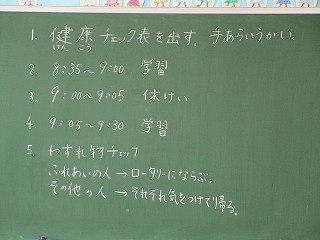 1. 健康チェック表を出す。手あらいうがい。
けん こう
2. 8:35～9:00 学習
3. 9:00～9:05 休けい
4. 9:05～9:30 学習
5. わすれ物チェック
ふれあいの人→ロータリーにならぶ。
その他の人→それぞれ気をつけて帰る。